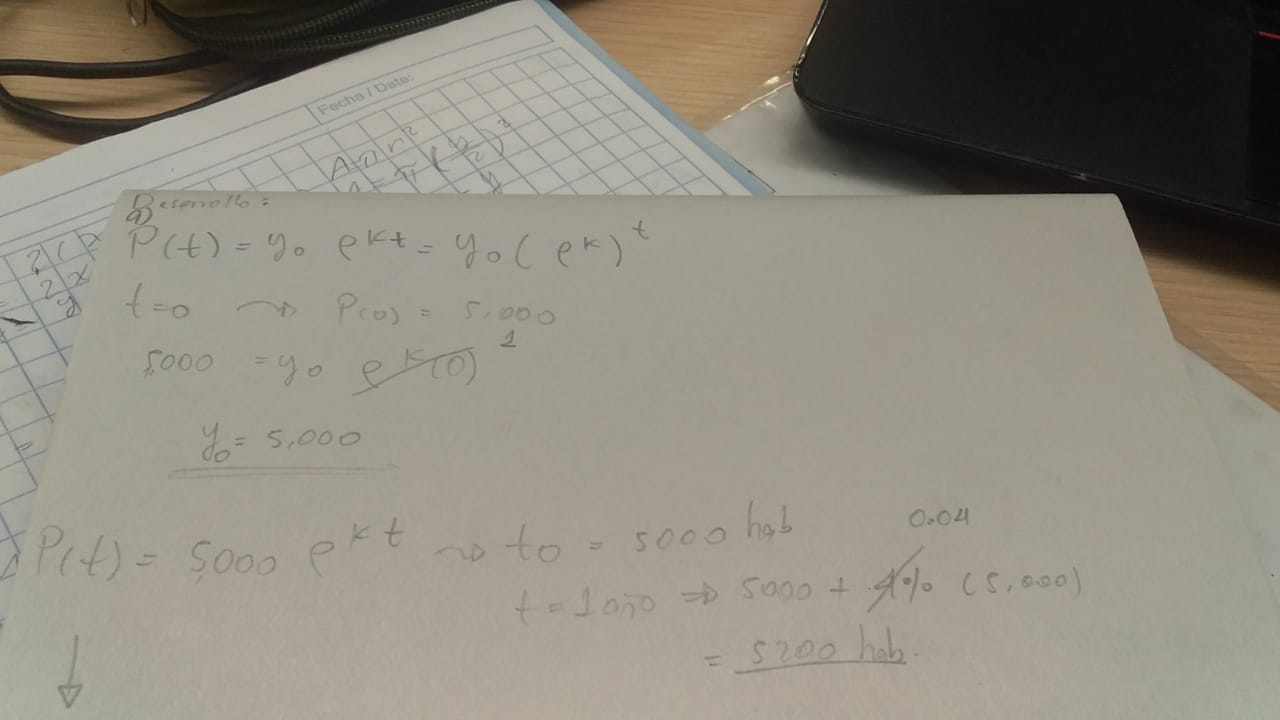 Fecha / Date:
A=π r²
Desarrollo:
a)
P(t) = y₀ e^kt = y₀ ( e^k )^t
t=0 → P(0) = 5,000
5,000 = y₀ e^k(0) 1
y₀ = 5,000
P(t) = 5,000 e^kt → t₀ = 5000 hab
0.04
t = 1 año ⇒ 5000 + 4% (5,000)
= 5200 hab.